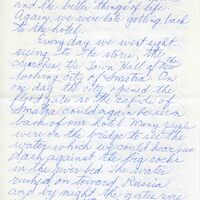 and the better things of life.
Again, we were late getting back
to the hotel.
Everyday we went sight
seeing to the stores, the
churches, the Town Hall of this
looking city of Imatra. On
one day the city opened the
flood gates so the rapids of
Imatra could again be seen
back of our hotel. Many people
were on the bridge to see the
water which we could hear, as
dash against the big rocks
in the river bed. The water
rushed on toward Russia
and by night the gates were